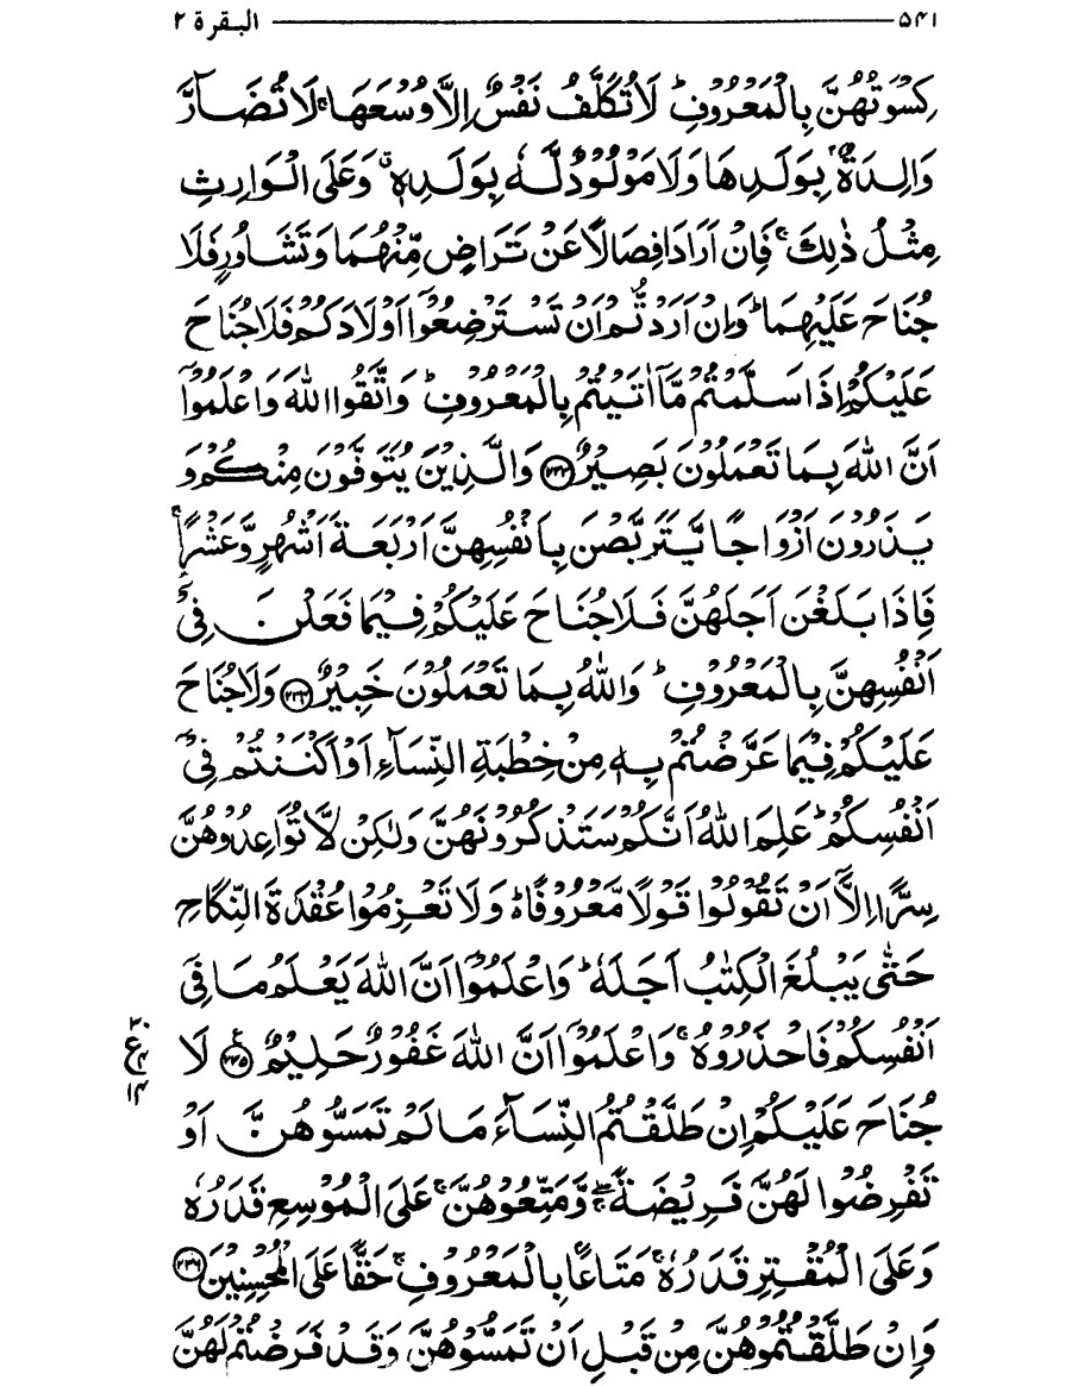 ۵۴۱ البقرة ۲
كِسْوَتُهُنَّ بِالْمَعْرُوْفِ ؕ لَا تُكَلَّفُ نَفْسٌ اِلَّا وُسْعَهَا ۚ لَا تُضَآرَّ
وَالِدَةٌۢ بِوَلَدِهَا وَلَا مَوْلُوْدٌ لَّهٗ بِوَلَدِهٖ ۗ وَعَلَى الْوَارِثِ
مِثْلُ ذٰلِكَ ۚ فَاِنْ اَرَادَا فِصَالًا عَنْ تَرَاضٍ مِّنْهُمَا وَتَشَاوُرٍ فَلَا
جُنَاحَ عَلَيْهِمَا ؕ وَاِنْ اَرَدْتُّمْ اَنْ تَسْتَرْضِعُوْٓا اَوْلَادَكُمْ فَلَا جُنَاحَ
عَلَيْكُمْ اِذَا سَلَّمْتُمْ مَّآ اٰتَيْتُمْ بِالْمَعْرُوْفِ ؕ وَاتَّقُوا اللّٰهَ وَاعْلَمُوْٓا
اَنَّ اللّٰهَ بِمَا تَعْمَلُوْنَ بَصِيْرٌ ۲۳۳ وَالَّذِيْنَ يُتَوَفَّوْنَ مِنْكُمْ وَ
يَذَرُوْنَ اَزْوَاجًا يَّتَرَبَّصْنَ بِاَنْفُسِهِنَّ اَرْبَعَةَ اَشْهُرٍ وَّعَشْرًا ۚ
فَاِذَا بَلَغْنَ اَجَلَهُنَّ فَلَا جُنَاحَ عَلَيْكُمْ فِيْمَا فَعَلْنَ فِيْٓ
اَنْفُسِهِنَّ بِالْمَعْرُوْفِ ؕ وَاللّٰهُ بِمَا تَعْمَلُوْنَ خَبِيْرٌ ۲۳۴ وَلَا جُنَاحَ
عَلَيْكُمْ فِيْمَا عَرَّضْتُمْ بِهٖ مِنْ خِطْبَةِ النِّسَآءِ اَوْ اَكْنَنْتُمْ فِيْٓ
اَنْفُسِكُمْ ؕ عَلِمَ اللّٰهُ اَنَّكُمْ سَتَذْكُرُوْنَهُنَّ وَلٰكِنْ لَّا تُوَاعِدُوْهُنَّ
سِرًّا اِلَّآ اَنْ تَقُوْلُوْا قَوْلًا مَّعْرُوْفًا ؕ۬ وَلَا تَعْزِمُوْا عُقْدَةَ النِّكَاحِ
حَتّٰى يَبْلُغَ الْكِتٰبُ اَجَلَهٗ ؕ وَاعْلَمُوْٓا اَنَّ اللّٰهَ يَعْلَمُ مَا فِيْٓ
اَنْفُسِكُمْ فَاحْذَرُوْهُ ۚ وَاعْلَمُوْٓا اَنَّ اللّٰهَ غَفُوْرٌ حَلِيْمٌ ۲۳۵ لَا
۳۰
ع
۴
۱۴
جُنَاحَ عَلَيْكُمْ اِنْ طَلَّقْتُمُ النِّسَآءَ مَا لَمْ تَمَسُّوْهُنَّ اَوْ
تَفْرِضُوْا لَهُنَّ فَرِيْضَةً ۖۚ وَّمَتِّعُوْهُنَّ ۚ عَلَى الْمُوْسِعِ قَدَرُهٗ
وَعَلَى الْمُقْتِرِ قَدَرُهٗ ۚ مَتَاعًاۢ بِالْمَعْرُوْفِ ۚ حَقًّا عَلَى الْمُحْسِنِيْنَ ۲۳۶
وَاِنْ طَلَّقْتُمُوْهُنَّ مِنْ قَبْلِ اَنْ تَمَسُّوْهُنَّ وَقَدْ فَرَضْتُمْ لَهُنَّ